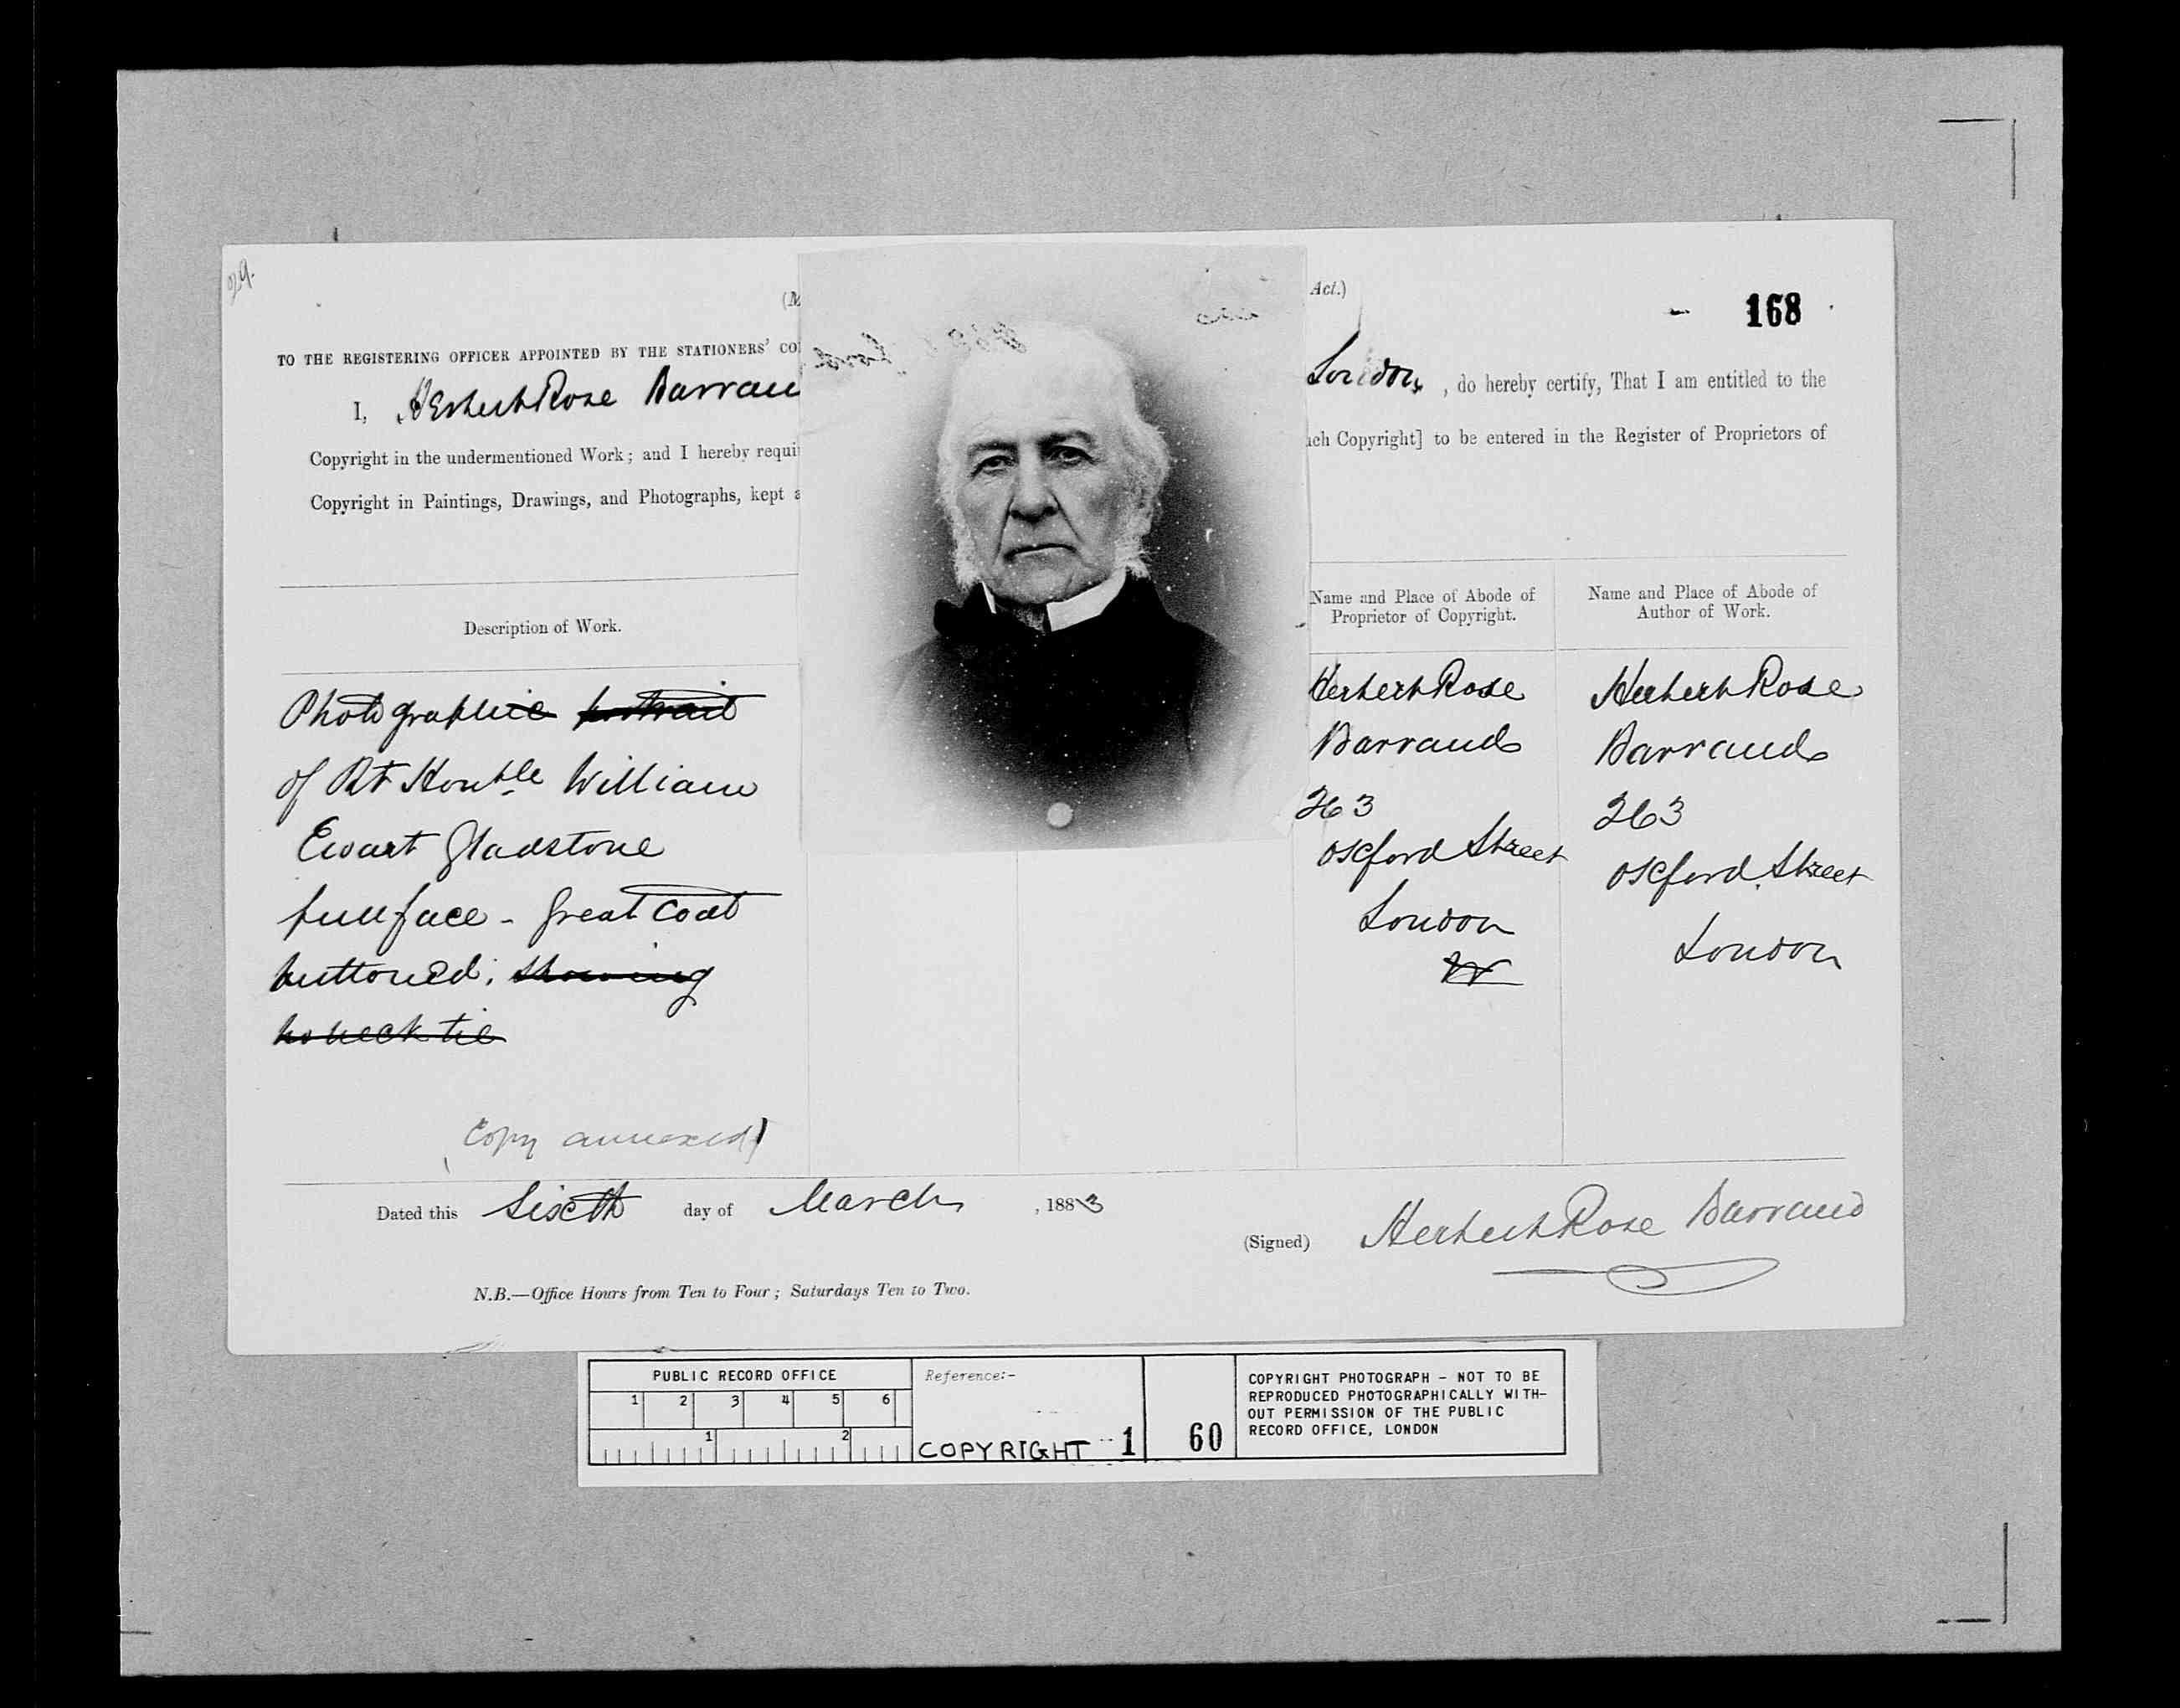 29.
(M
Act.)
168
TO THE REGISTERING OFFICER APPOINTED BY THE STATIONERS' CO
I, Herbert Rose Barrau
London, do hereby certify, That I am entitled to the
Copyright in the undermentioned Work; and I hereby requi
ch Copyright] to be entered in the Register of Proprietors of
Copyright in Paintings, Drawings, and Photographs, kept a
Description of Work.
Name and Place of Abode of
Proprietor of Copyright.
Name and Place of Abode of
Author of Work.
Photographic portrait
of Rt Honble William
Ewart Gladstone
full face - Great Coat
buttoned; showing
no neck tie
(Copy annexed)
Herbert Rose
Barraud
263
Oxford Street
London
W
Herbert Rose
Barraud
263
Oxford Street
London
Dated this Sixth day of March, 1883
(Signed) Herbert Rose Barraud
N.B.—Office Hours from Ten to Four; Saturdays Ten to Two.
PUBLIC RECORD OFFICE
1 2 3 4 5 6
1 2
Reference:-
COPYRIGHT 1
60
COPYRIGHT PHOTOGRAPH - NOT TO BE
REPRODUCED PHOTOGRAPHICALLY WITH-
OUT PERMISSION OF THE PUBLIC
RECORD OFFICE, LONDON